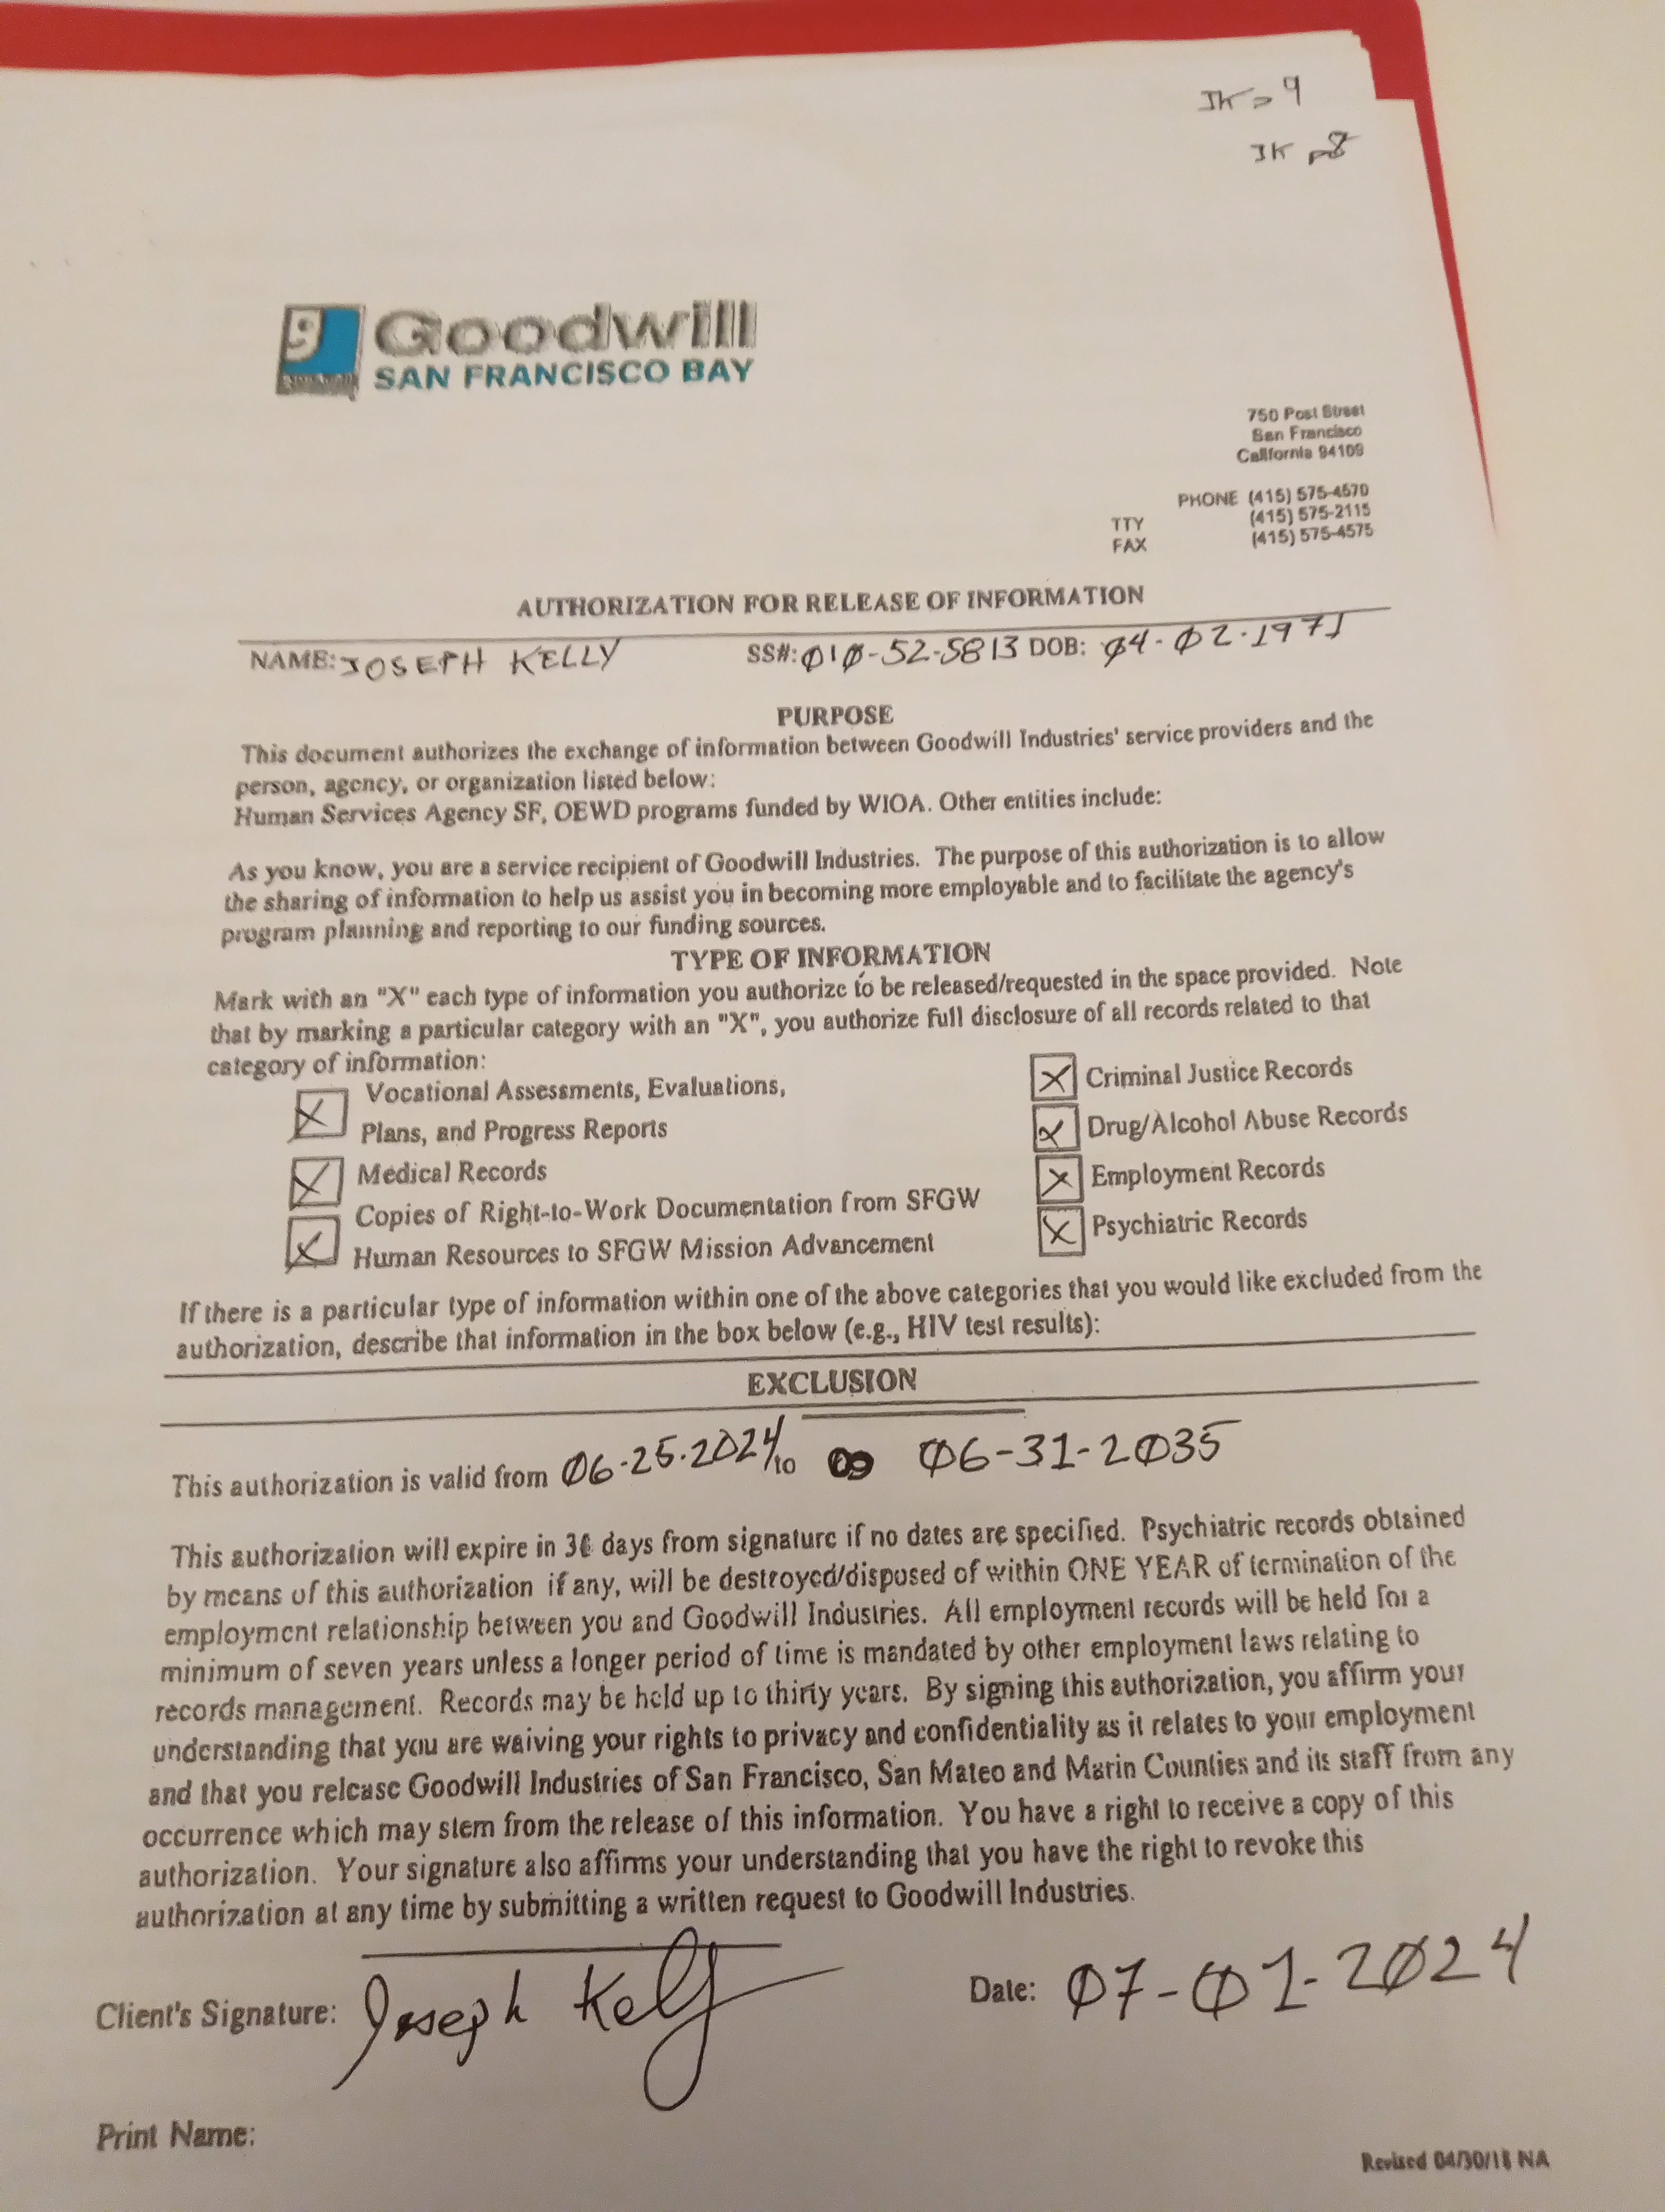 JK > 9
JK p8
Goodwill
SAN FRANCISCO BAY
750 Post Street
San Francisco
California 94109
PHONE (415) 575-4570
TTY (415) 575-2115
FAX (415) 575-4575
AUTHORIZATION FOR RELEASE OF INFORMATION
NAME: JOSEPH KELLY SS#: 010-52-5813 DOB: 04-02-1971
PURPOSE
This document authorizes the exchange of information between Goodwill Industries' service providers and the
person, agency, or organization listed below:
Human Services Agency SF, OEWD programs funded by WIOA. Other entities include:
As you know, you are a service recipient of Goodwill Industries. The purpose of this authorization is to allow
the sharing of information to help us assist you in becoming more employable and to facilitate the agency's
program planning and reporting to our funding sources.
TYPE OF INFORMATION
Mark with an "X" each type of information you authorize to be released/requested in the space provided. Note
that by marking a particular category with an "X", you authorize full disclosure of all records related to that
category of information:
X Vocational Assessments, Evaluations,
Plans, and Progress Reports
X Medical Records
X Copies of Right-to-Work Documentation from SFGW
Human Resources to SFGW Mission Advancement
X Criminal Justice Records
X Drug/Alcohol Abuse Records
X Employment Records
X Psychiatric Records
If there is a particular type of information within one of the above categories that you would like excluded from the
authorization, describe that information in the box below (e.g., HIV test results):
EXCLUSION
This authorization is valid from 06-25-2024 to 06-31-2035
This authorization will expire in 30 days from signature if no dates are specified. Psychiatric records obtained
by means of this authorization if any, will be destroyed/disposed of within ONE YEAR of termination of the
employment relationship between you and Goodwill Industries. All employment records will be held for a
minimum of seven years unless a longer period of time is mandated by other employment laws relating to
records management. Records may be held up to thirty years. By signing this authorization, you affirm your
understanding that you are waiving your rights to privacy and confidentiality as it relates to your employment
and that you release Goodwill Industries of San Francisco, San Mateo and Marin Counties and its staff from any
occurrence which may stem from the release of this information. You have a right to receive a copy of this
authorization. Your signature also affirms your understanding that you have the right to revoke this
authorization at any time by submitting a written request to Goodwill Industries.
Client's Signature: Joseph Kelly Date: 07-01-2024
Print Name:
Revised 04/30/18 NA